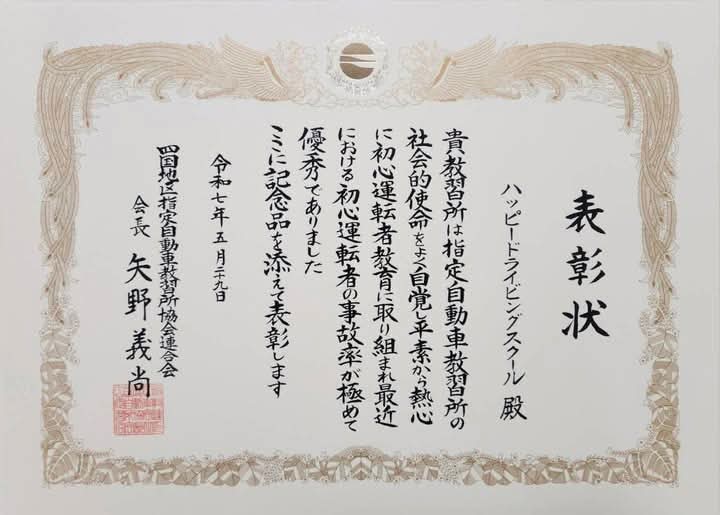 表彰状
ハッピードライビングスクール 殿
貴教習所は指定自動車教習所の
社会的使命をよく自覚し平素から熱心
に初心運転者教育に取り組まれ最近
における初心運転者の事故率が極めて
優秀でありました
ここに記念品を添えて表彰します
令和七年五月二十九日
四国地区指定自動車教習所協会連合会
会長 矢野義尚